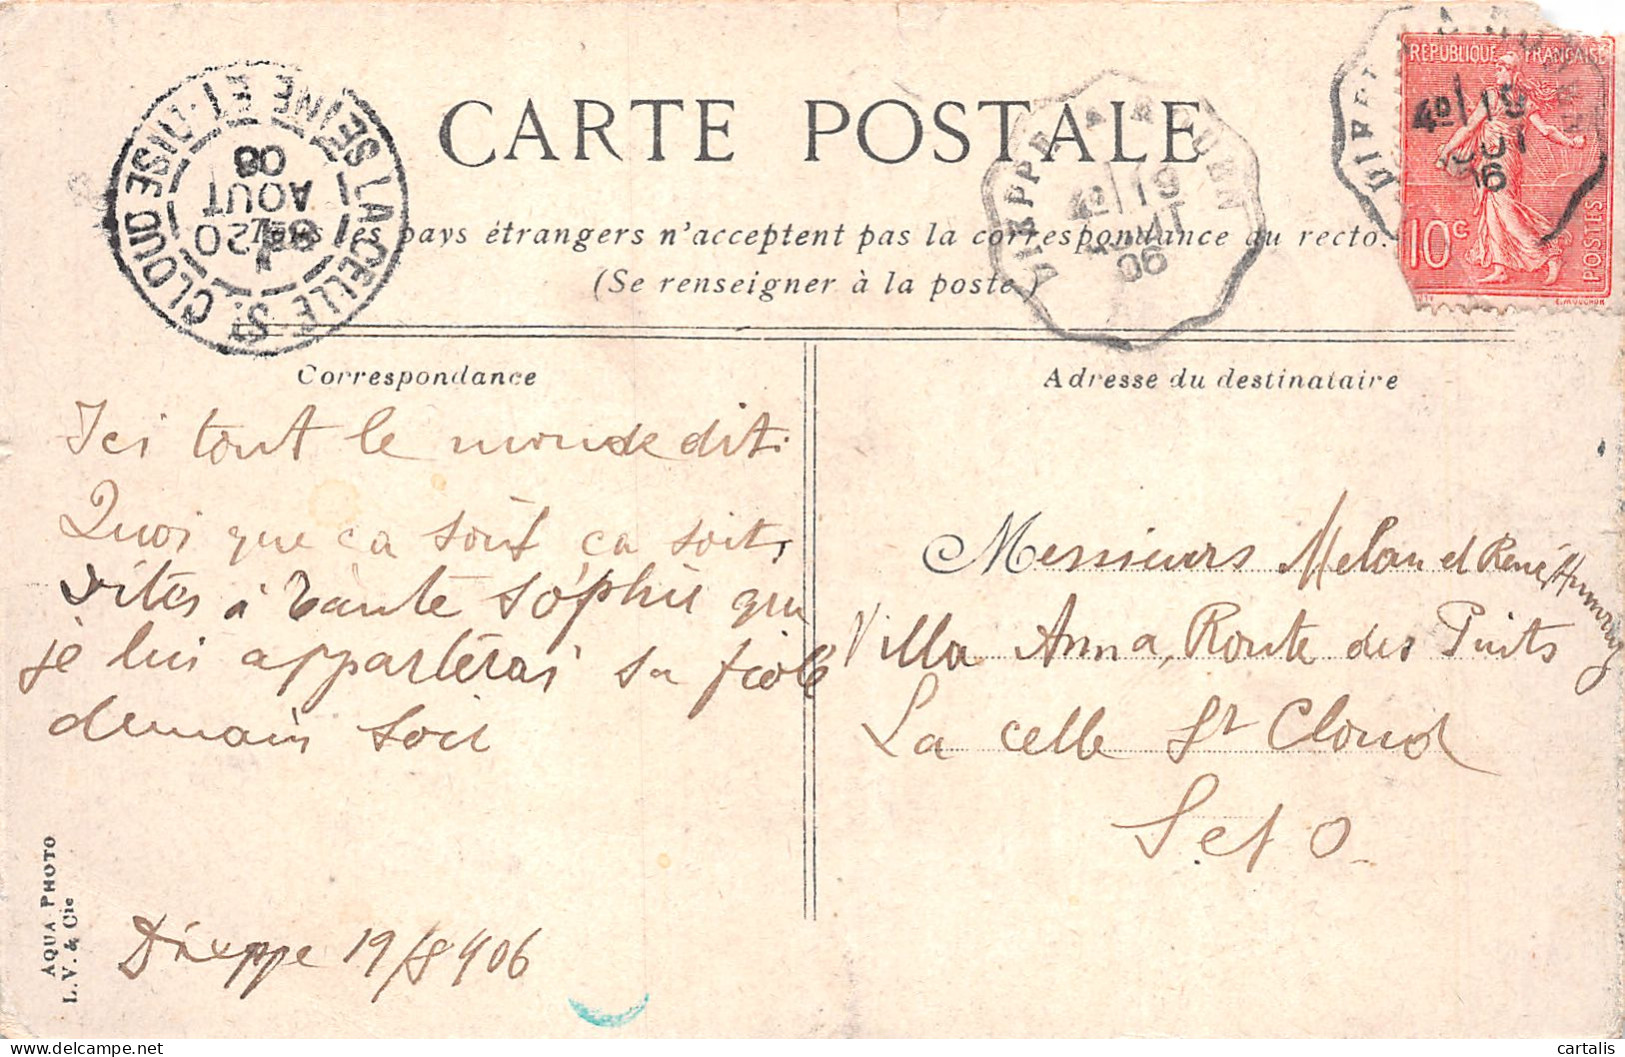 CARTE POSTALE
Tous les pays étrangers n'acceptent pas la correspondance au recto.
(Se renseigner à la poste)
Correspondance
Adresse du destinataire
Ici tout le monde dit.
Quoi que ca soit ca soit,
dites à tante Sophie que
je lui apporterai sa fiole
demain soir
Dieppe 19/8 906
Messieurs Melan et René
Villa Anna, Route des Puits
La celle St Cloud
S et O
AQUA PHOTO
L. V. & Cie
LA CELLE ST CLOUD
SEINE ET OISE
8E
20
AOUT
06
DIEPPE A ROUEN
4º 19
AOUT
06
DIEPPE A ROUEN
4º 19
AOUT
06
RÉPUBLIQUE FRANÇAISE
10c
POSTES
E. MOUCHON
cartalis
delcampe.net